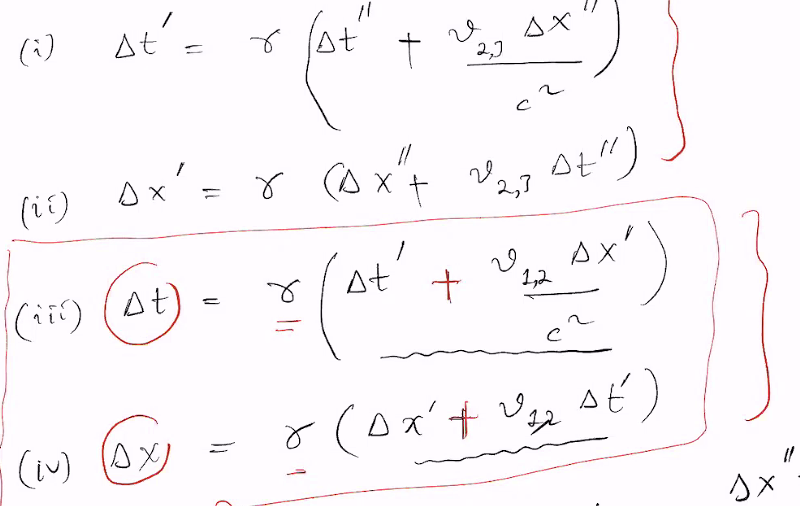 (i) Δt′ = γ (Δt″ + v₂,₃ Δx″ / c²)
(ii) Δx′ = γ (Δx″ + v₂,₃ Δt″)
(iii) Δt = γ (Δt′ + v₁,₂ Δx′ / c²)
(iv) Δx = γ (Δx′ + v₁,₂ Δt′)
Δx″